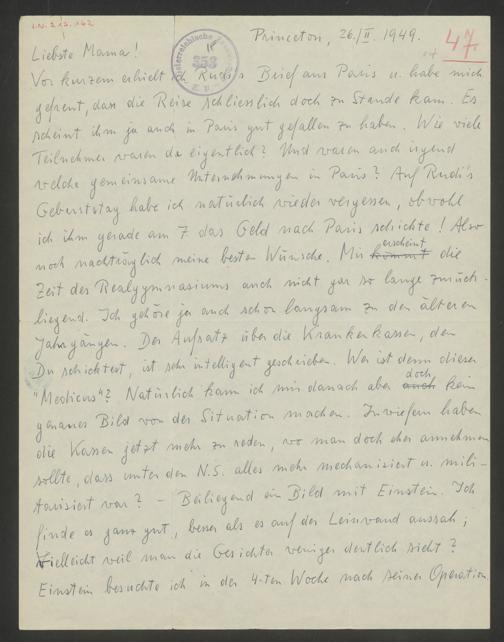 I.N. 213.162
Princeton, 26./II. 1949.
47.
Österreichische
353
Liebste Mama!
Vor kurzem erhielt ich Rudi's Brief aus Paris u. habe mich
gefreut, dass die Reise schliesslich doch zu Stande kam. Es
scheint ihm ja auch in Paris gut gefallen zu haben. Wie viele
Teilnehmer waren da eigentlich? Und waren auch irgend
welche gemeinsame Unternehmungen in Paris? Auf Rudi's
Geburtstag habe ich natürlich wieder vergessen, obwohl
ich ihm gerade am 7 das Geld nach Paris schickte! Also
noch nachträglich meine besten Wünsche. Mir kommt erscheint die
Zeit des Realgymnasiums auch nicht gar so lange zurück-
liegend. Ich gehöre ja auch schon langsam zu den älteren
Jahrgängen. Der Aufsatz über die Krankenkassen, den
Du schicktest, ist sehr intelligent geschrieben. Wer ist denn dieser
"Medicus"? Natürlich kann ich mir danach aber auch doch kein
genaues Bild von der Situation machen. Inwiefern haben
die Kassen jetzt mehr zu reden, wo man doch eher annehmen
sollte, dass unter den N.S. alles mehr mechanisiert u. mili-
tarisiert war? – Beiliegend ein Bild mit Einstein. Ich
finde es ganz gut, besser als es auf der Leinwand aussah;
Vielleicht weil man die Gesichter weniger deutlich sieht?
Einstein besuchte ich in der 4-ten Woche nach seiner Operation